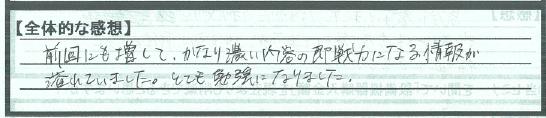 【全体的な感想】
前回にも増して、かなり濃い内容の即戦力になる情報が
溢れていました。とても勉強になりました。